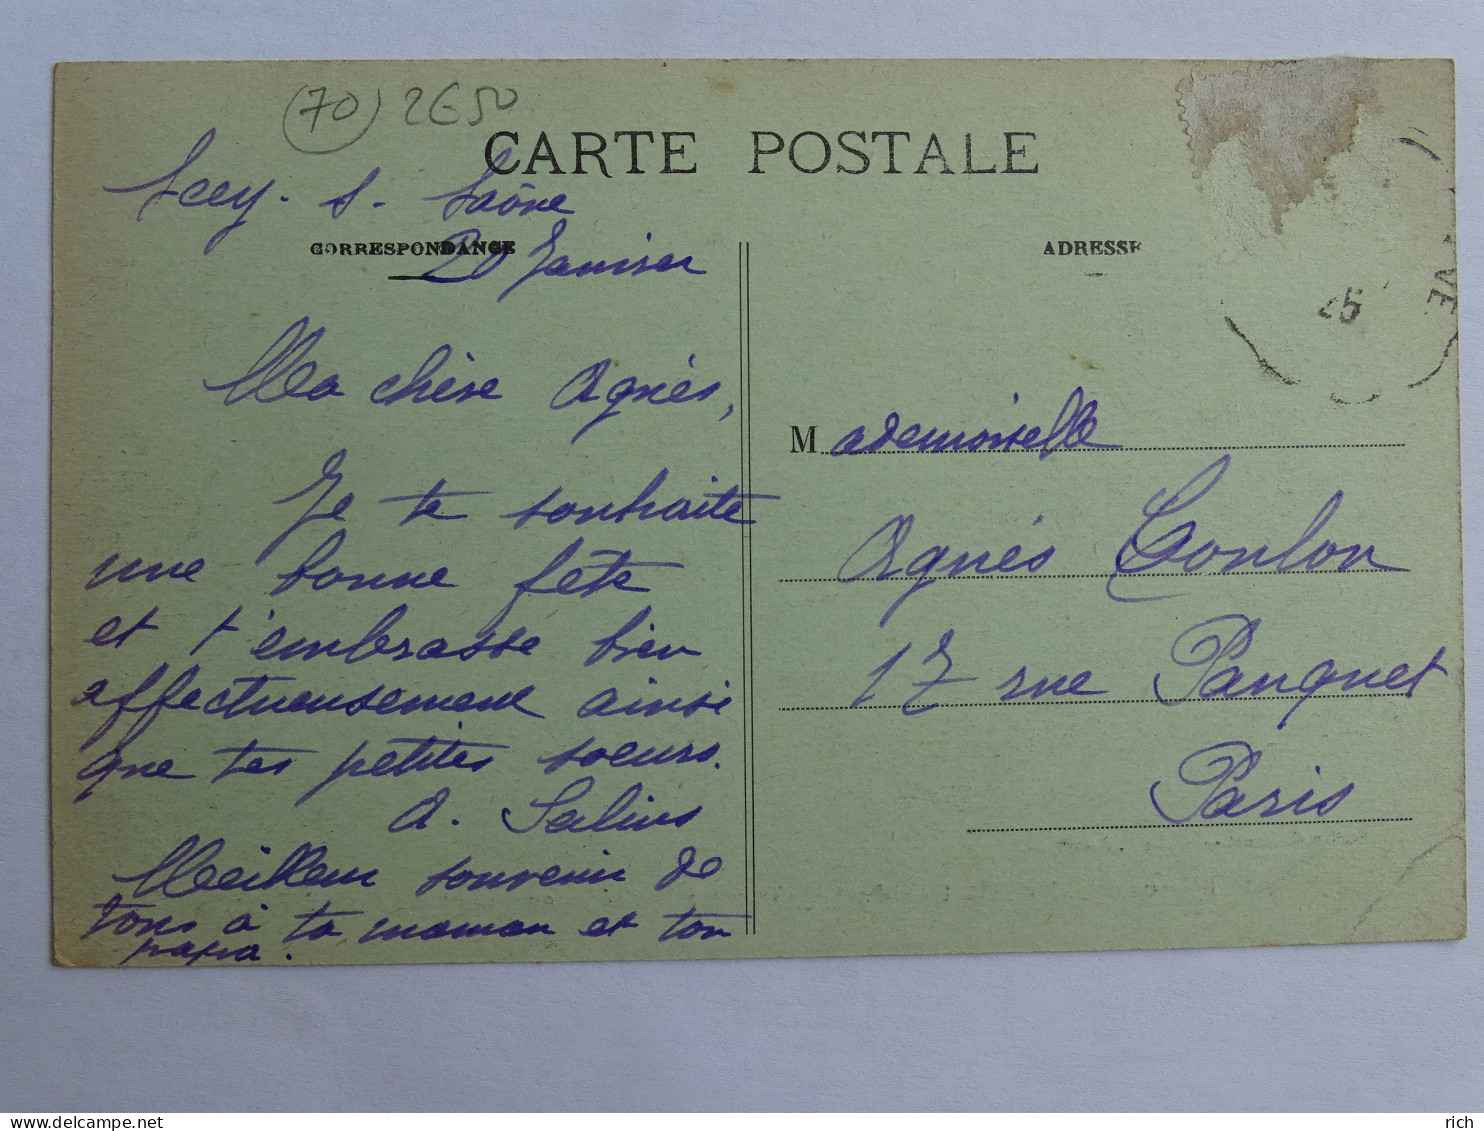 (70) 2€50
CARTE POSTALE
Scey. s. Saône
CORRESPONDANCE
20 Janvier
Ma chère Agnès,
Je te souhaite
une bonne fête
et t'embrasse bien
affectueusement ainsi
que tes petites soeurs.
A. Salins
Meilleur souvenir de
tous à ta maman et ton
papa.
ADRESSE
25
VE
Mademoiselle
Agnès Coulon
17 rue Pauquet
Paris
delcampe.net
rich